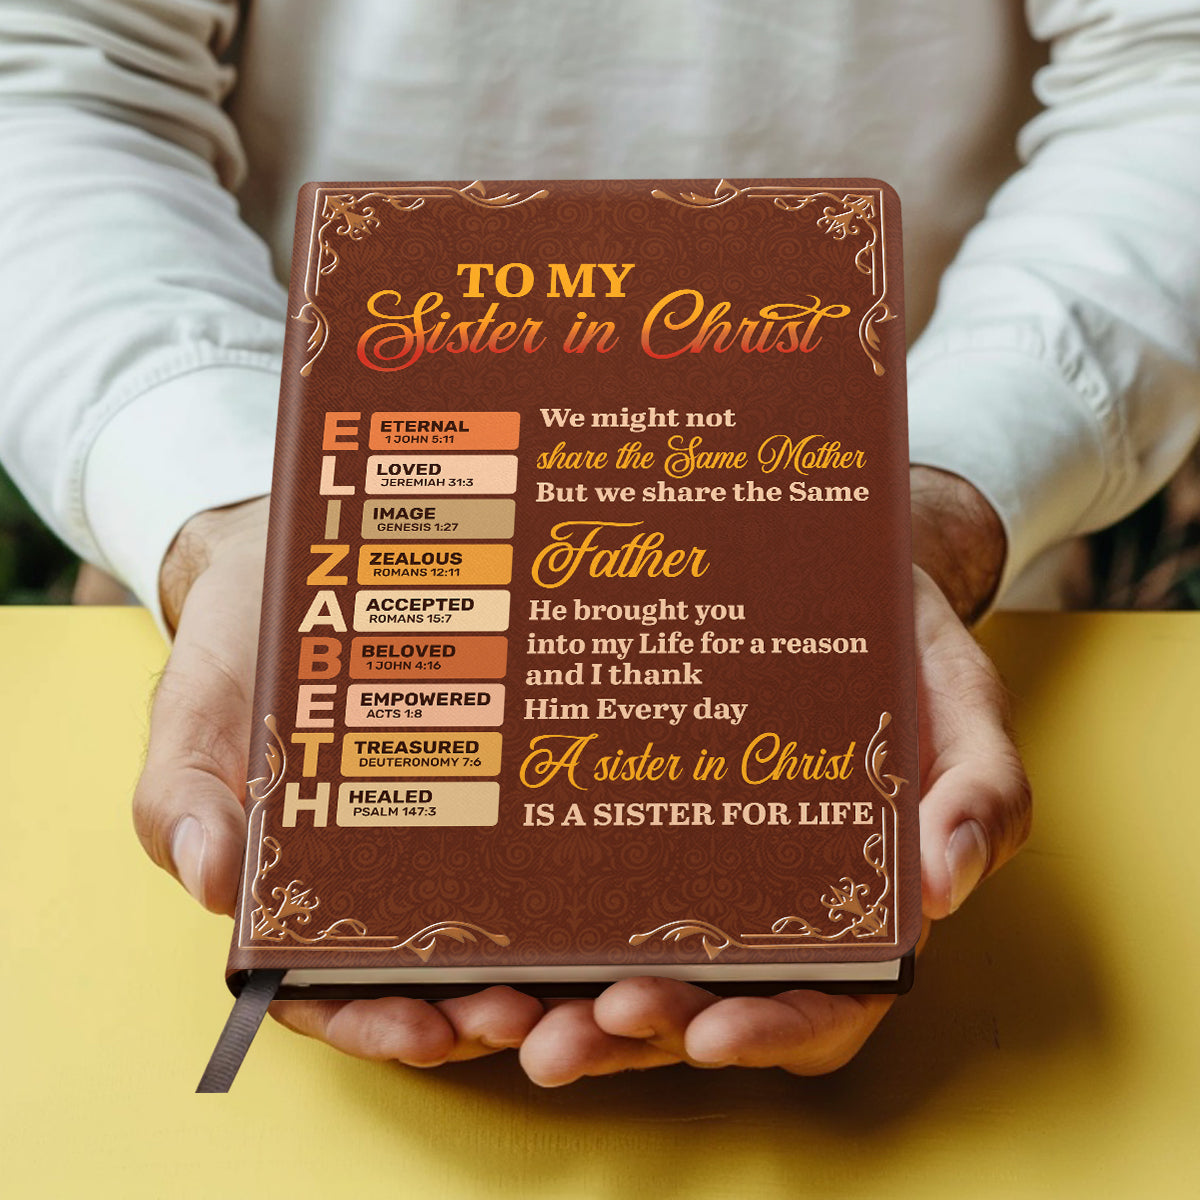 TO MY
Sister in Christ
E ETERNAL
1 JOHN 5:11
L LOVED
JEREMIAH 31:3
I IMAGE
GENESIS 1:27
Z ZEALOUS
ROMANS 12:11
A ACCEPTED
ROMANS 15:7
B BELOVED
1 JOHN 4:16
E EMPOWERED
ACTS 1:8
T TREASURED
DEUTERONOMY 7:6
H HEALED
PSALM 147:3
We might not
share the Same Mother
But we share the Same
Father
He brought you
into my Life for a reason
and I thank
Him Every day
A sister in Christ
IS A SISTER FOR LIFE